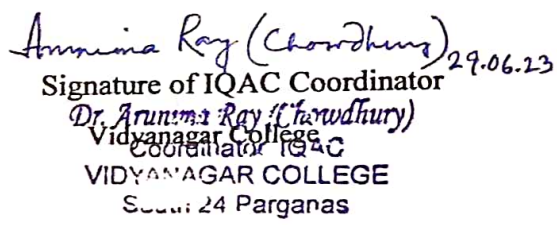 Arunima Ray (Chowdhury) 29.06.23
Signature of IQAC Coordinator
Dr. Arunima Ray (Chowdhury)
Vidyanagar College
Coordinator IQAC
VIDYANAGAR COLLEGE
South 24 Parganas